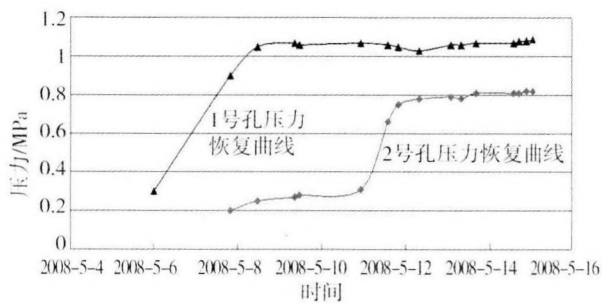 1.2
1
0.8
0.6
0.4
0.2
0
压力/MPa
1号孔压力
恢复曲线
2号孔压力恢复曲线
2008-5-4 2008-5-6 2008-5-8 2008-5-10 2008-5-12 2008-5-14 2008-5-16
时间